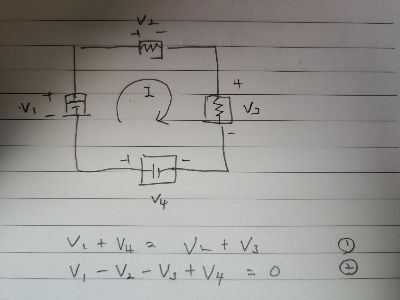 V2
+ -
+
V1
-
I
+
V3
-
+ -
V4
V1 + V4 = V2 + V3 ①
V1 - V2 - V3 + V4 = 0 ②